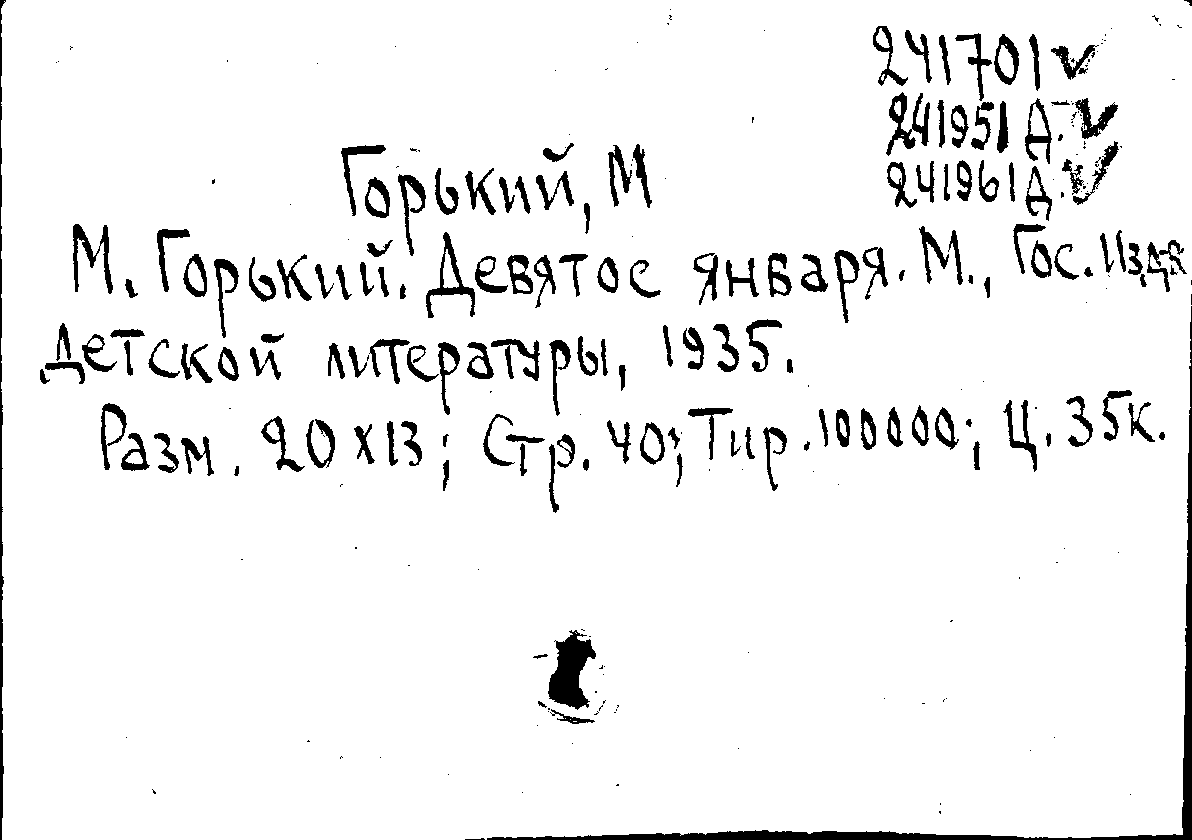 241701 ✓
241951 Д. ✓
241961 Д. ✓
Горький, М
М. Горький. Девятое января. М., Гос. Издв
детской литературы, 1935.
Разм. 20х13; Стр. 40; Тир. 100000; Ц. 35к.